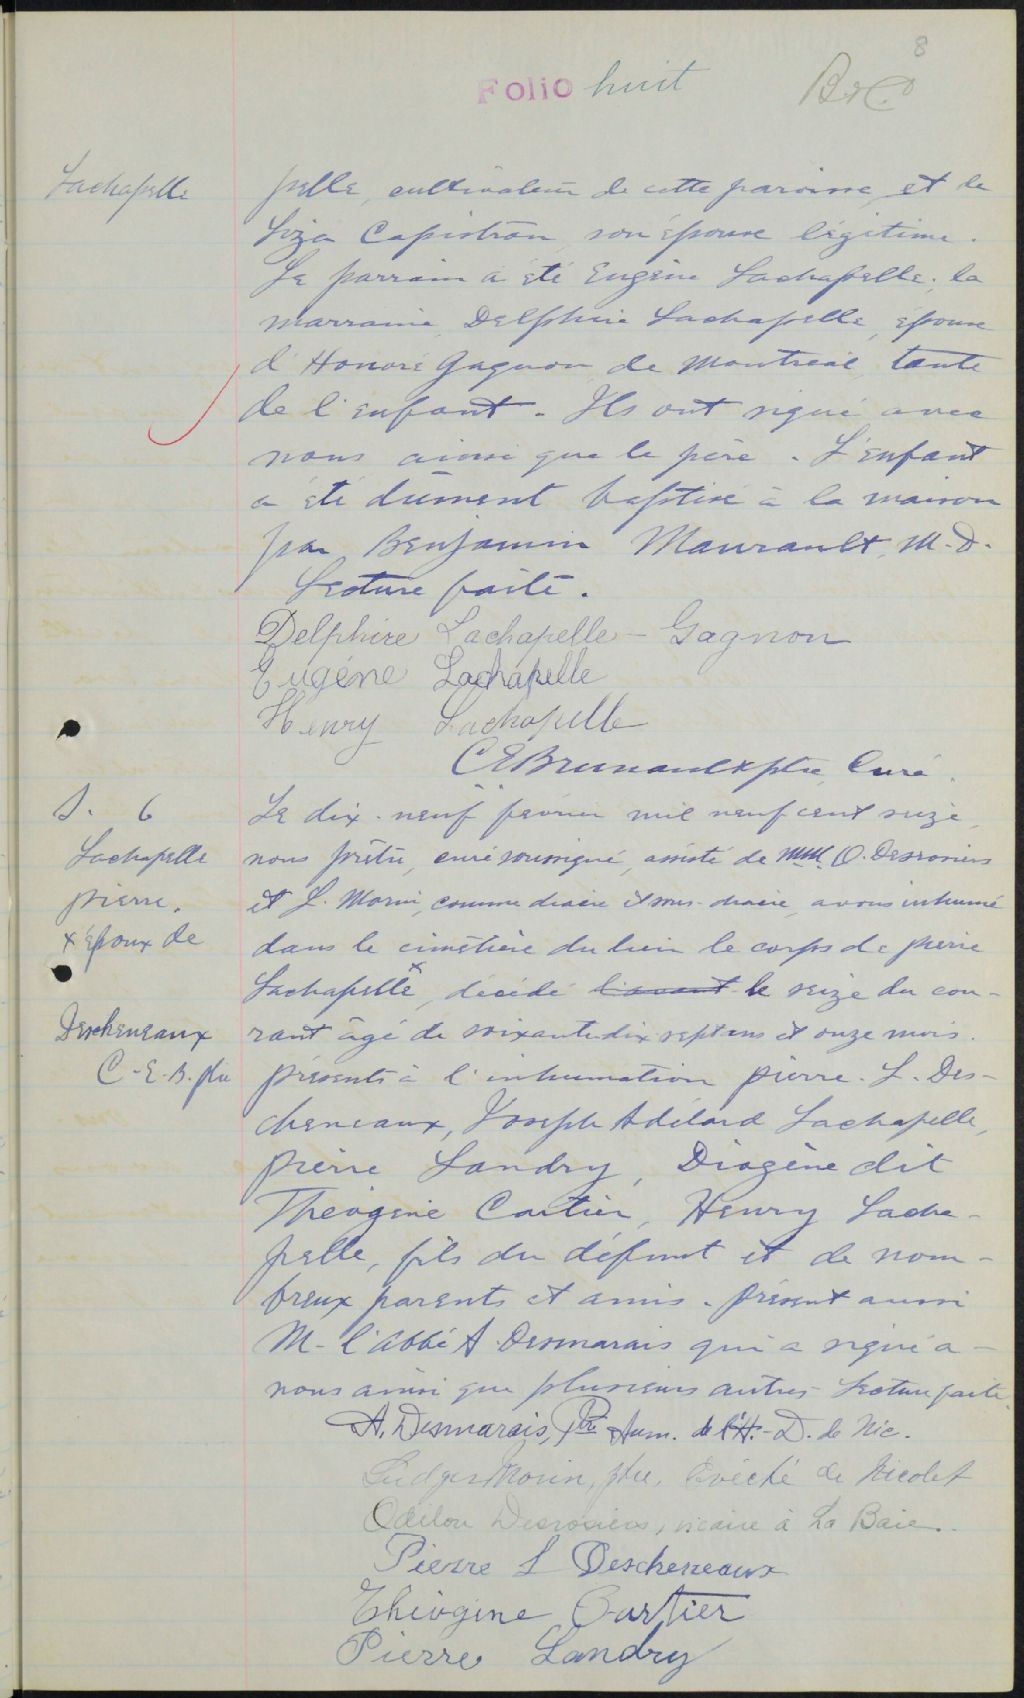 8
Folio huit
B & C
Lachapelle
pelle, cultivateur de cette paroisse, et de
Liza Capistran, son épouse légitime.
Le parrain a été Eugène Lachapelle, la
marraine, Delphine Lachapelle, épouse
d'Honoré Gagnon, de Montréal, tante
de l'enfant. Ils ont signé avec
nous ainsi que le père. L'enfant
a été dûment baptisé à la maison
par Benjamin Maurault, M.D.
Lecture faite.
Delphire Lachapelle - Gagnon
Eugéne Lachapelle
Henry Lachapelle
C E Brunault ptre, Curé.
S. 6
Lachapelle
Pierre.
x époux de
Descheneaux
C.-E. B. ptre
Le dix-neuf février mil neuf cent seize,
nous prêtre, curé soussigné, assisté de MM. O. Desrosiers
et L. Morin, comme diacre et sous-diacre, avons inhumé
dans le cimetière du lieu le corps de Pierre
Lachapelle x, décédé le seize du cou-
rant âgé de soixante-dix-sept ans et onze mois.
Présents à l'inhumation Pierre. L. Des-
cheneaux, Joseph Adélard Lachapelle,
Pierre Landry, Diogène dit
Théogène Cartier, Henry Lacha-
pelle, fils du défunt et de nom-
breux parents et amis. Présent aussi
M. l'abbé A Desmarais qui a signé a-
nous ainsi que plusieurs autres. Lecture faite.
A. Desmarais, Ptre Aum. de l'H.-D. de Nic.
Ludger Morin, ptre, Evêché de Nicolet
Odilon Desrosiers, vicaire à La Baie.
Pierre L Descheneaux
Théogine Cartier
Pierre Landry